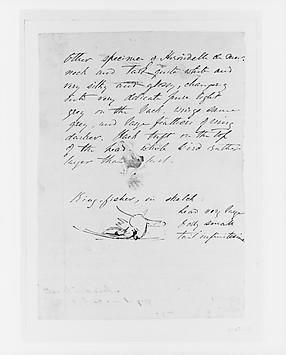 Other specimen of Hirondelle de Mer
neck and tail quite white and
very silky and glossy, changing
into very delicate pure light
grey on the back, wings same
grey, and large feathers of wing
darker. Black tuft on the top
of the head. whole bird rather
larger than
King-fisher, in sketch
head very large
body small
tail infinitesimal